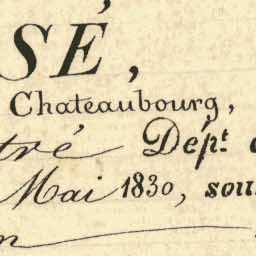 SÉ,
Chateaubourg,
tré Dépt.
Mai 1830, sou
n